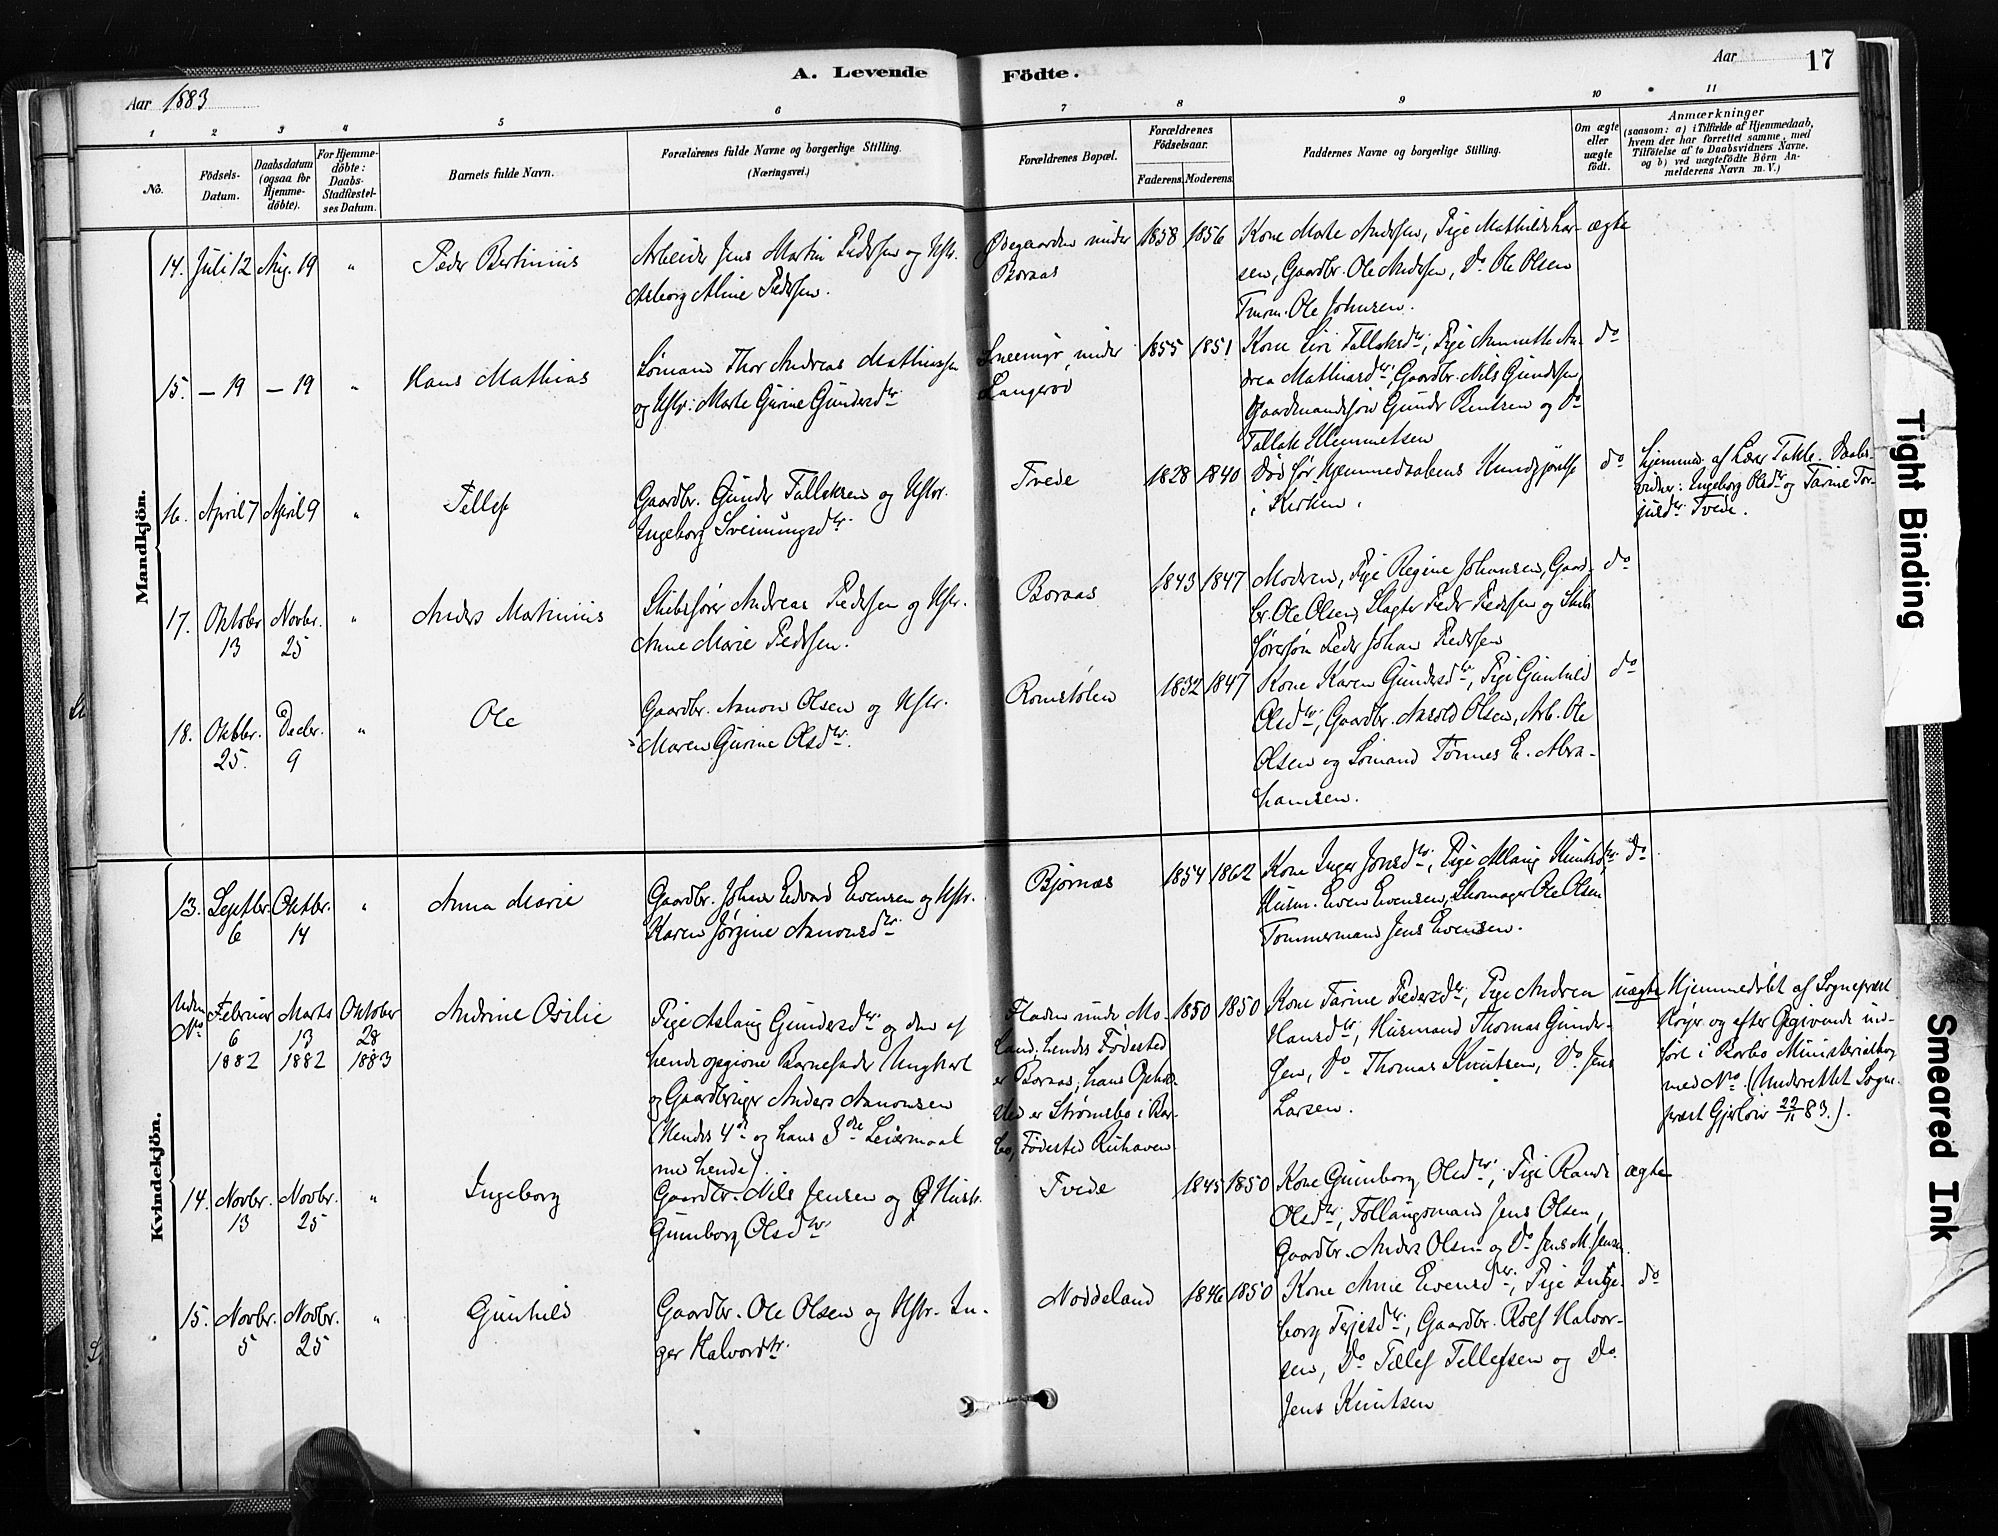 A. Levende Födte.
Aar 1883
Aar 17
1 2 3 4 5 6 7 8 9 10 11
No.
Födsels-
Datum.
Daabsdatum
(ogsaa for
Hjemme-
döbte).
For Hjemme-
döbte:
Daabs-
Stadfæstel-
ses Datum.
Barnets fulde Navn.
Forældrenes fulde Navne og borgerlige Stilling.
(Næringsvei.)
Forældrenes Bopæl.
Forældrenes
Födselsaar.
Faderens. Moderens.
Faddernes Navne og borgerlige Stilling.
Om ægte
eller
uægte
födt.
Anmærkninger
(saasom: a) i Tilfælde af Hjemmedaab,
hvem der har forrettet samme, med
Tilföielse af to Daabsvidners Navne,
og b) ved uægtefödte Börn An-
melderens Navn m. V.)
Mandkjön.
14. Juli 12 Aug. 19 " Peder Bertinius
Arbeider Jens Martin Pedersen og Hstr.
Asborg Aline Pedersen.
Ødegaarden under
Boraas
1858 1856
Kone Marte Andersen, Pige Mathilde Lar-
sen, Gaardbr. Ole Andersen, Do Ole Olsen
Tmrm. Ole Johnsen.
ægte
15. – 19 – 19 " Hans Mathias
Sømand Thor Andreas Mathiassen
og Hstr. Marte Gurine Gundersdtr.
under
Langerød
1855 1851
Kone Siri Tallaksdtr., Pige Annette An-
drea Mathiasdtr., Gaardbr. Nils Gundersen,
Gaardmandssøn Gunder Berntsen og Do
Tallak Klemmetsen
do
16. April 7 April 9 " Tellef
Gaardbr. Gunder Tallaksen og Hstr.
Ingeborg Sveinungsdtr.
Tvede
1828 1840
Død før Hjemmedaabens Kundgjørelse
i Kirken.
do
Hjemmed. af Lærer Takle. Daabs-
vidner: Ingeborg Olsdtr. og Tarine Tor-
jusdtr. Tvede.
17. Oktober 13 Novbr. 25 " Anders Martinius
Skibsfører Andreas Pedersen og Hstr.
Anne Marie Pedersen.
Boraas
1843 1847
Moderen, Pige Regine Johansen, Gaard-
br. Ole Olsen, Slagter Peder Pedersen og Skibs-
førersøn Peder Johan Pedersen
do
18. Oktbr. 25. Decbr. 9 " Ole
Gaardbr. Aanon Olsen og Hstr.
Maren Gurine Olsdtr.
Romstølen
1832 1847
Kone Karen Gundersdtr., Pige Gunhild
Olsdtr., Gaardbr. Aasold Olsen, Arb. Ole
Olsen og Sømand Tønnes E. Abra-
hamsen.
do
Kvindekjön.
13. Septbr. 6 Oktbr. 14 " Anna Marie
Gaardbr. Johan Edvard Evensen og Hstr.
Karen Jørgine Aanonsdtr.
Bjørnæs
1854 1862
Kone Inger Jonsdtr., Pige Aslaug Knutsdtr.
Husm. Even Evensen, Skomager Ole Olsen
Tømmermand Jens Evensen.
do
Uden No Februar 6 1882 Marts 13 1882 Oktober 28 1883 Andrine Osilie
Pige Aslaug Gundersdtr. og den af
hende opgivne Barnefader Ungkarl
og Gaardbruger Anders Aanonsen
(Hendes 4de og hans 3die Leiermaal
med hende).
Fladen under Mo-
land; hendes Fødested
er Boraas, hans Opholds-
sted er Strømsbo i Bar-
bo, Fødested Rishaven
1850 1850
Kone Tarine Pedersdtr., Pige Andrea
Hansdtr., Husmand Thomas Gunder-
sen, Do Thomas Knutsen, Do Jens
Larsen.
uægte
Hjemmedøbt af Sognepræst
Høyer og efter Opgivende ind-
ført i Barbo Ministerialbog
med No (Underrettet Sogne-
præst Gjerløw 22/11 83.).
14. Novbr. 13 Novbr. 25 " Ingeborg
Gaardbr. Nils Jensen og Hustr.
Gunborg Olsdtr.
Tvede
1845 1850
Kone Gunborg Olsdtr., Pige Randi
Olsdtr., Føllaugsmand Jens Olsen,
Gaardbr. Anders Olsen og Do Jens M. Jensen.
ægte
15. Novbr. 5 Novbr. 25 " Gunhild
Gaardbr. Ole Olsen og Hstr. In-
ger Halvordtr.
Noddeland
1846 1850
Kone Anne Evensdtr., Pige Inge-
borg Terjesdtr., Gaardbr. Rolf Halvor-
sen, Do Tellef Tellefsen og Do
Jens Knutsen
do
Tight Binding
Smeared Ink